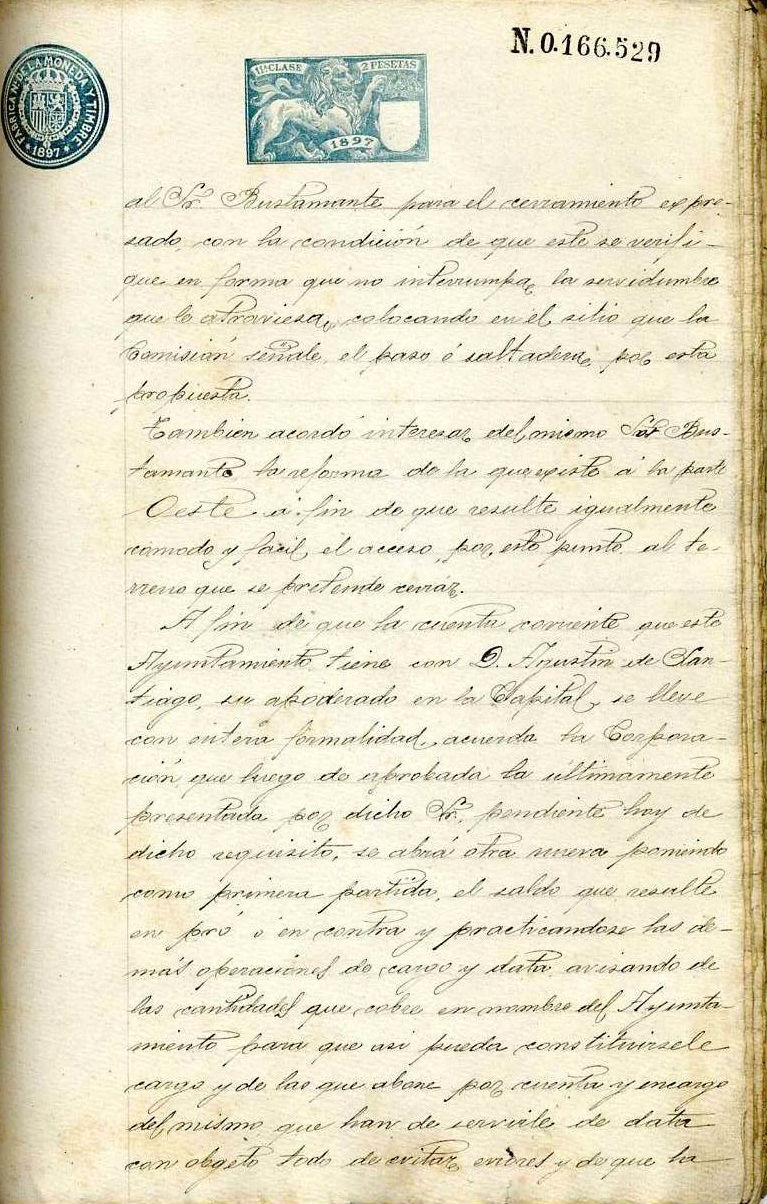 N. 0.166.529
FABRICA N. DE LA MONEDA Y TIMBRE
* 1897 *
11ª CLASE 2 PESETAS
1897
al Sr. Bustamante para el cerramiento expre-
sado, con la condición de que este se verifi-
que en forma que no interrumpa la servidumbre
que lo atraviesa, colocando en el sitio que la
Comisión señale, el paso ó saltadera por esta
propuesta.
Tambien acordó interesar del mismo Sor Bus-
tamante la reforma de la que existe á la parte
Oeste á fin de que resulte igualmente
comodo y fácil el acceso por este punto al te-
rreno que se pretende cerrar.
A fin de que la cuenta corriente que este
Ayuntamiento tiene con D. Agustin de San-
tiago, su apoderado en la Capital, se lleve
con entera formalidad, acuerda la Corpora-
ción que luego de aprobada la últimamente
presentada por dicho Sr. pendiente hoy de
dicho requisito, se abra otra nueva poniendo
como primera partida, el saldo que resulte
en pró ó en contra y practicandose las de-
más operaciones de cargo y data, avisando de
las cantidades que cobre en nombre del Ayunta-
miento para que asi pueda constituirsele
cargo y de las que abone por cuenta y encargo
del mismo que han de servirle de data
con objeto todo de evitar errores y de que ha-